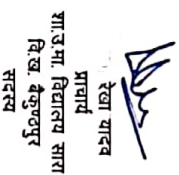 रेखा यादव
प्राचार्य
शा.उ.मा. विद्यालय सारा
वि.ख. बैकुण्ठपुर
सदस्य